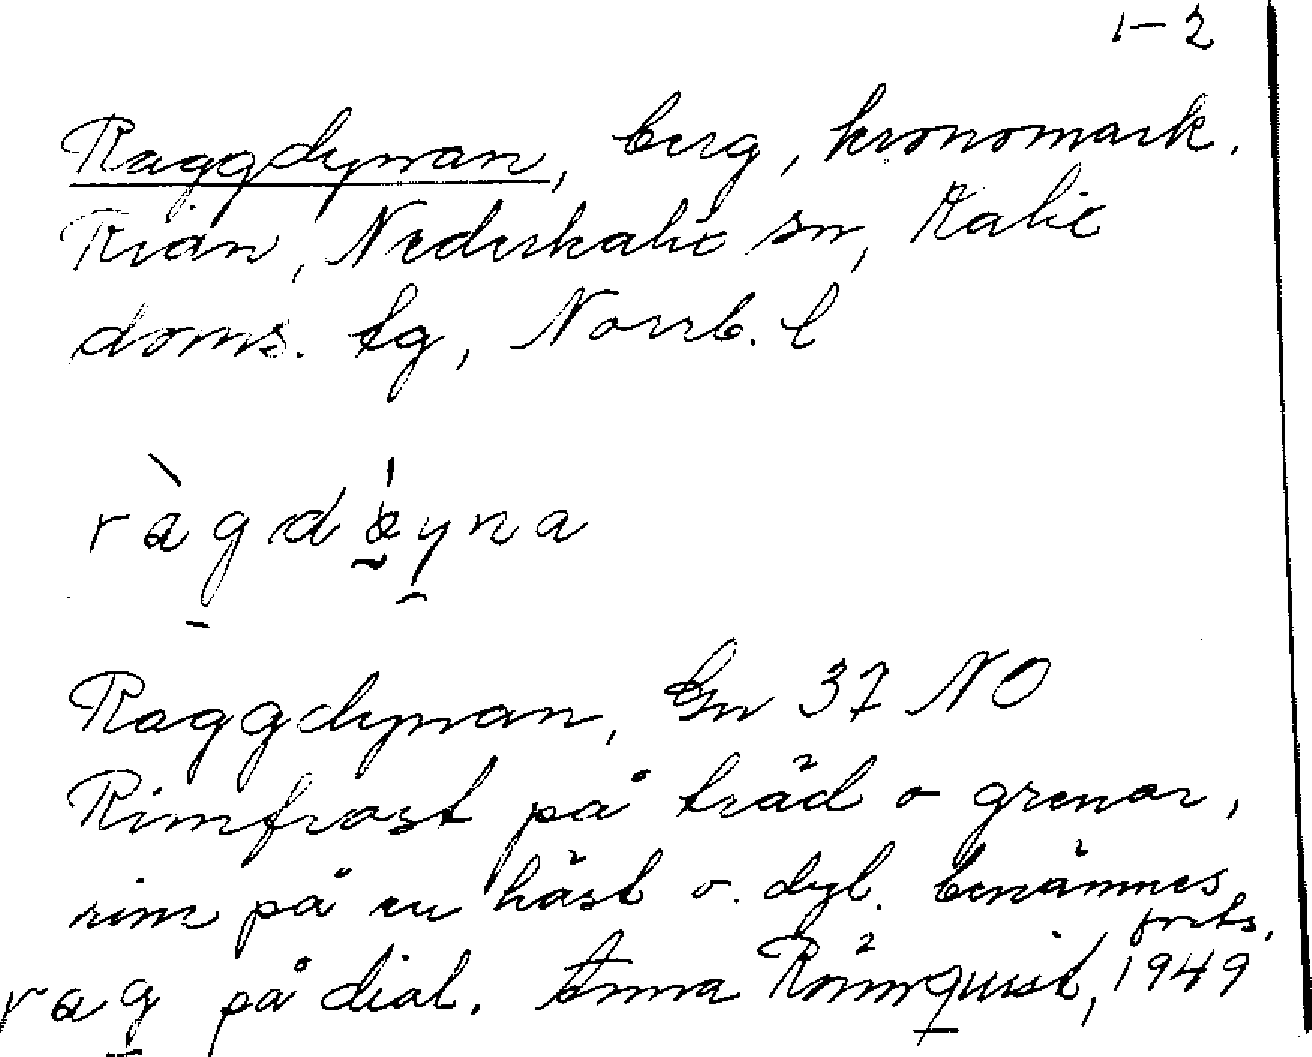 1-2
Raggdynan, berg, kronomark.
Rian, Nederkalix sn, Kalix
doms. tg, Norrb. l
ràgdáyna
Raggdynan, Gn 37 NO
Rimfrost på träd o grenar,
rim på en häst o. dyl. benämnes
forts.
rag på dial. Anna Rönnquist, 1949